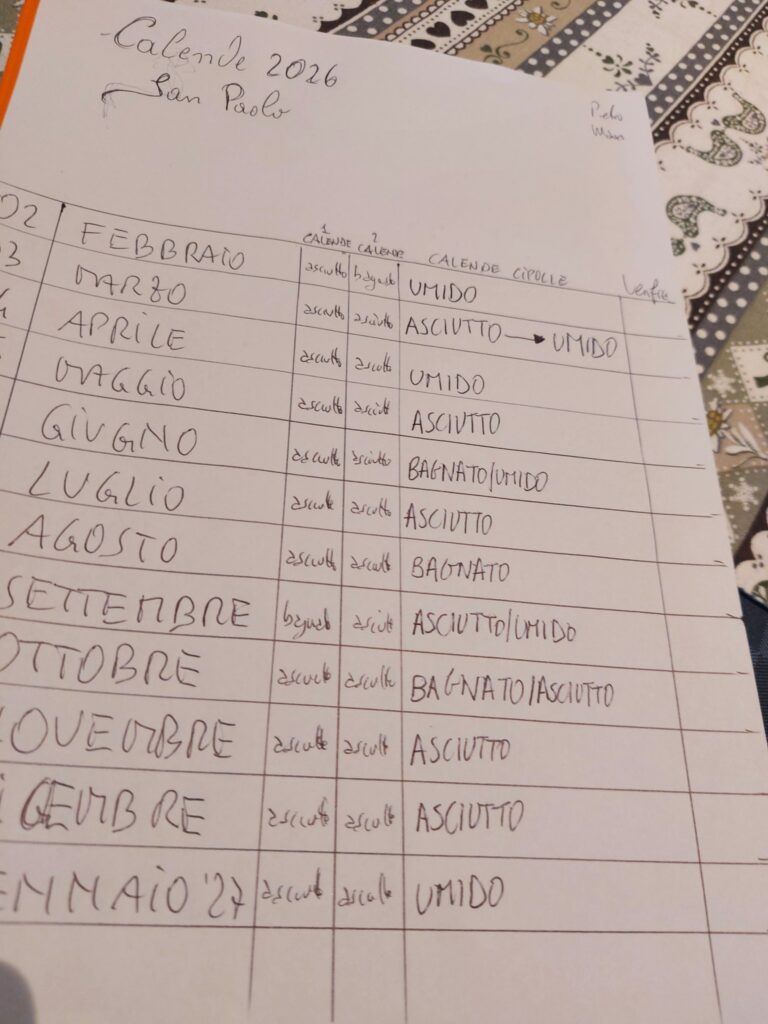 Calende 2026
San Paolo
1 CALENDE 2 CALENDE CALENDE CIPOLLE
02 FEBBRAIO asciutto bagnato UMIDO
03 MARZO asciutto asciutto ASCIUTTO → UMIDO
APRILE asciutto asciutto UMIDO
MAGGIO asciutto asciutt ASCIUTTO
GIUGNO asciutto asciutto BAGNATO/UMIDO
LUGLIO asciutto asciutto ASCIUTTO
AGOSTO asciutto asciutto BAGNATO
SETTEMBRE bagnato asciutto ASCIUTTO/UMIDO
OTTOBRE asciutto asciutto BAGNATO/ASCIUTTO
NOVEMBRE asciutto asciutto ASCIUTTO
DICEMBRE asciutto asciutto ASCIUTTO
ENNAIO '27 asciutto asciutto UMIDO